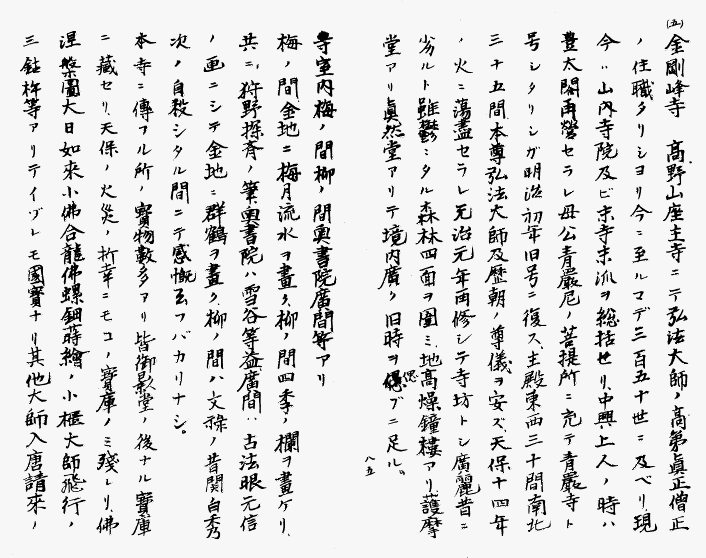 (五)金剛峰寺　高野山座主寺ニテ弘法大師ノ高弟眞正僧正
ノ住職タリシヨリ今ニ至ルマデ三百五十世ニ及ベリ現
今ハ山内寺院及ビ末寺末派ヲ総括セリ中興上人ノ時ハ
豊太閤再營セラレ母公青巖尼ノ菩提所ニ充テ青巖寺ト
号シタリシガ明治初年旧号ニ復ス、主殿東西三十間南北
三十五間本尊弘法大師及歴朝ノ尊儀ヲ安ズ、天保十四年
ノ火ニ蕩盡セラレ元治元年再修シテ寺坊トシ廣麗昔ニ
劣ルト雖鬱ニタル森林四面ヲ圍ミ、地高燥鐘樓アリ、護摩
堂アリ眞然堂アリテ境内廣ク旧時ヲ偲ブニ足ル。
八五
寺室内梅ノ間柳ノ間奥書院廣間等アリ
梅ノ間金地ニ梅月流水ヲ畫ク、柳ノ間四季ノ欄ヲ畫ケリ、
共ニ、狩野探斉ノ筆、奥書院ハ雪谷等益廣間ハ古法眼元信
ノ画ニシテ金地ニ群鶴ヲ畫ク、柳ノ間ハ文祿ノ昔関白秀
次ノ自殺シタル間ニテ感慨云フバカリナシ。
本寺ニ傳フル所ノ寶物數多アリ皆御影堂ノ後ナル寶庫
ニ藏セリ、天保ノ火災ノ折幸ニモコノ寶庫ノミ殘レリ、佛
涅槃圖大日如來小佛合龍佛螺鈿蒔繪ノ小櫃大師飛行ノ
三鈷杵等アリテイヅレモ國寶ナリ其他大師入唐請來ノ